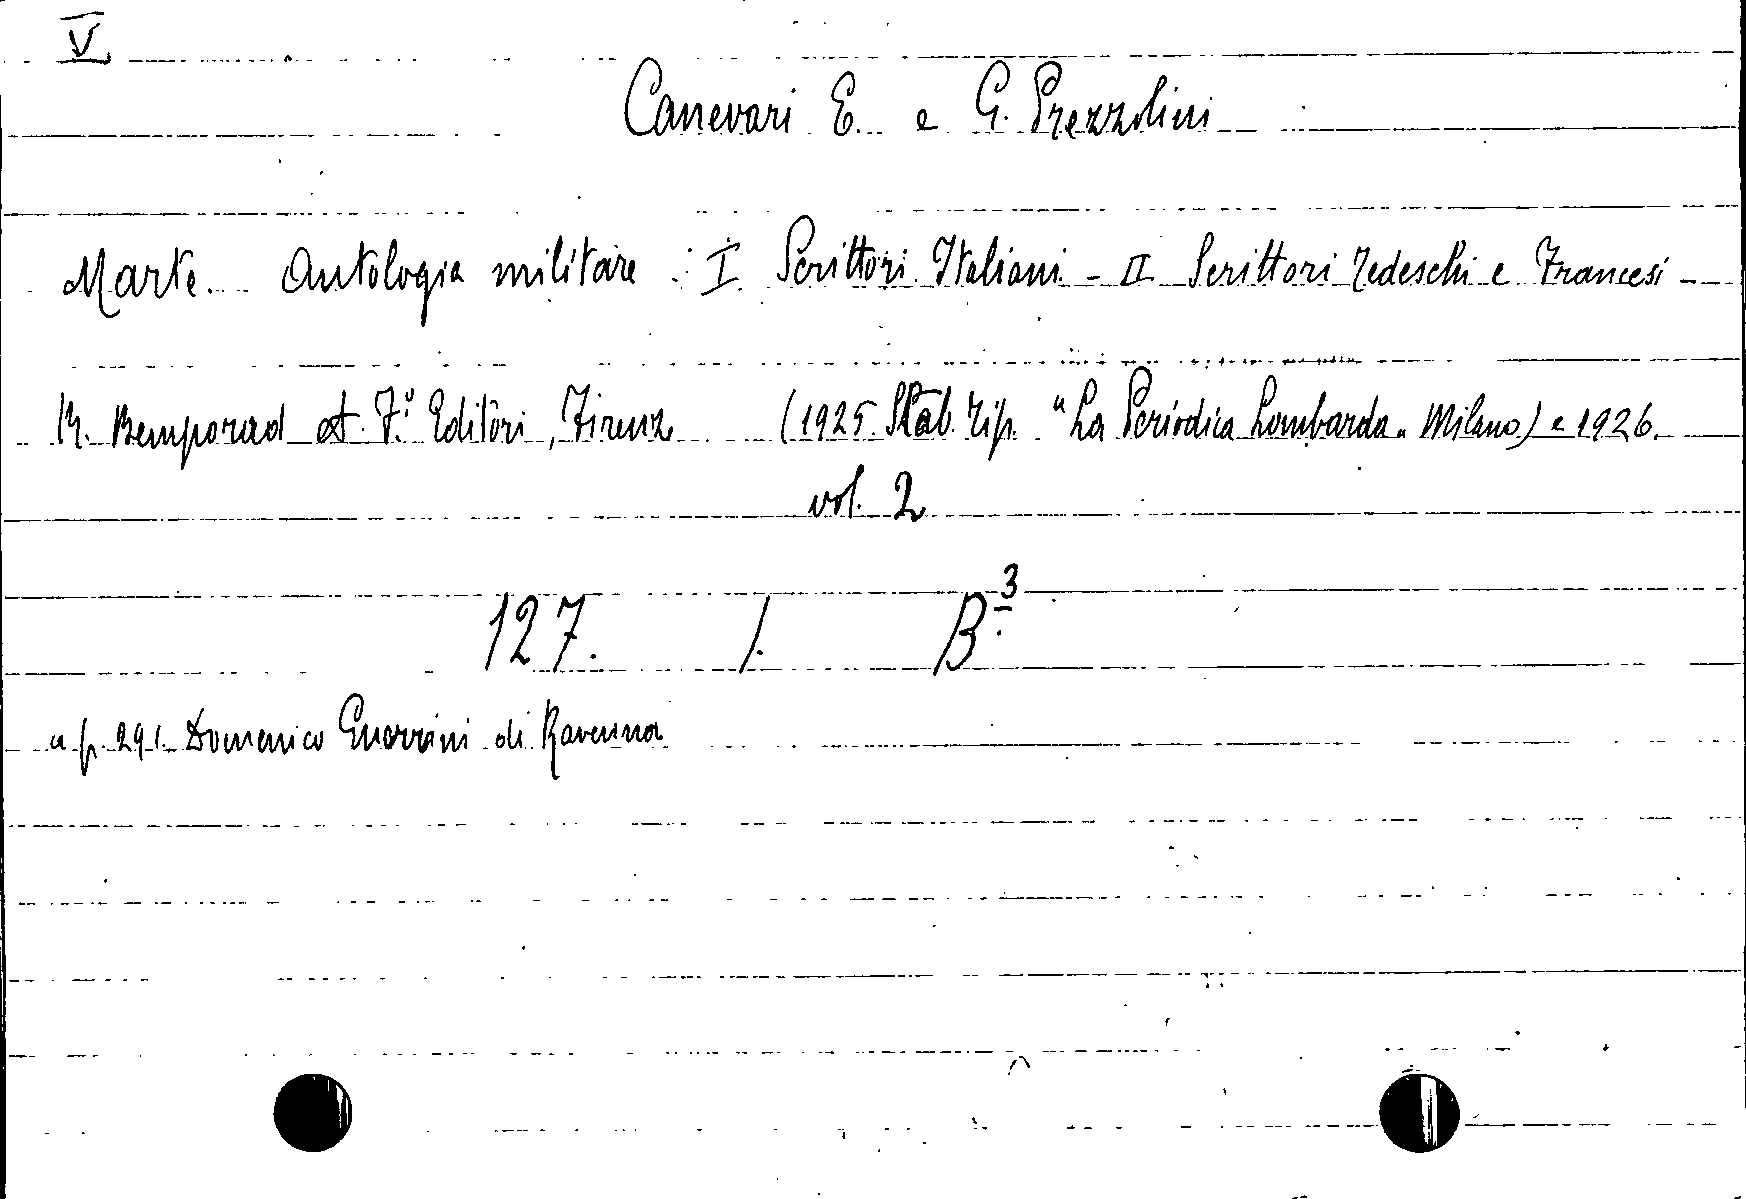 V
Canevari E. e G. Prezzolini
Marte. Antologia militare: I Scrittori Italiani - II Scrittori Tedeschi e Francesi -
R. Bemporad et F.º Editori, Firenze (1925 Stab. Tip. "La Periodica Lombarda„ Milano) e 1926.
vol. 2
127. 1. B.3
a p. 291 Domenico Guerrini di Ravenna